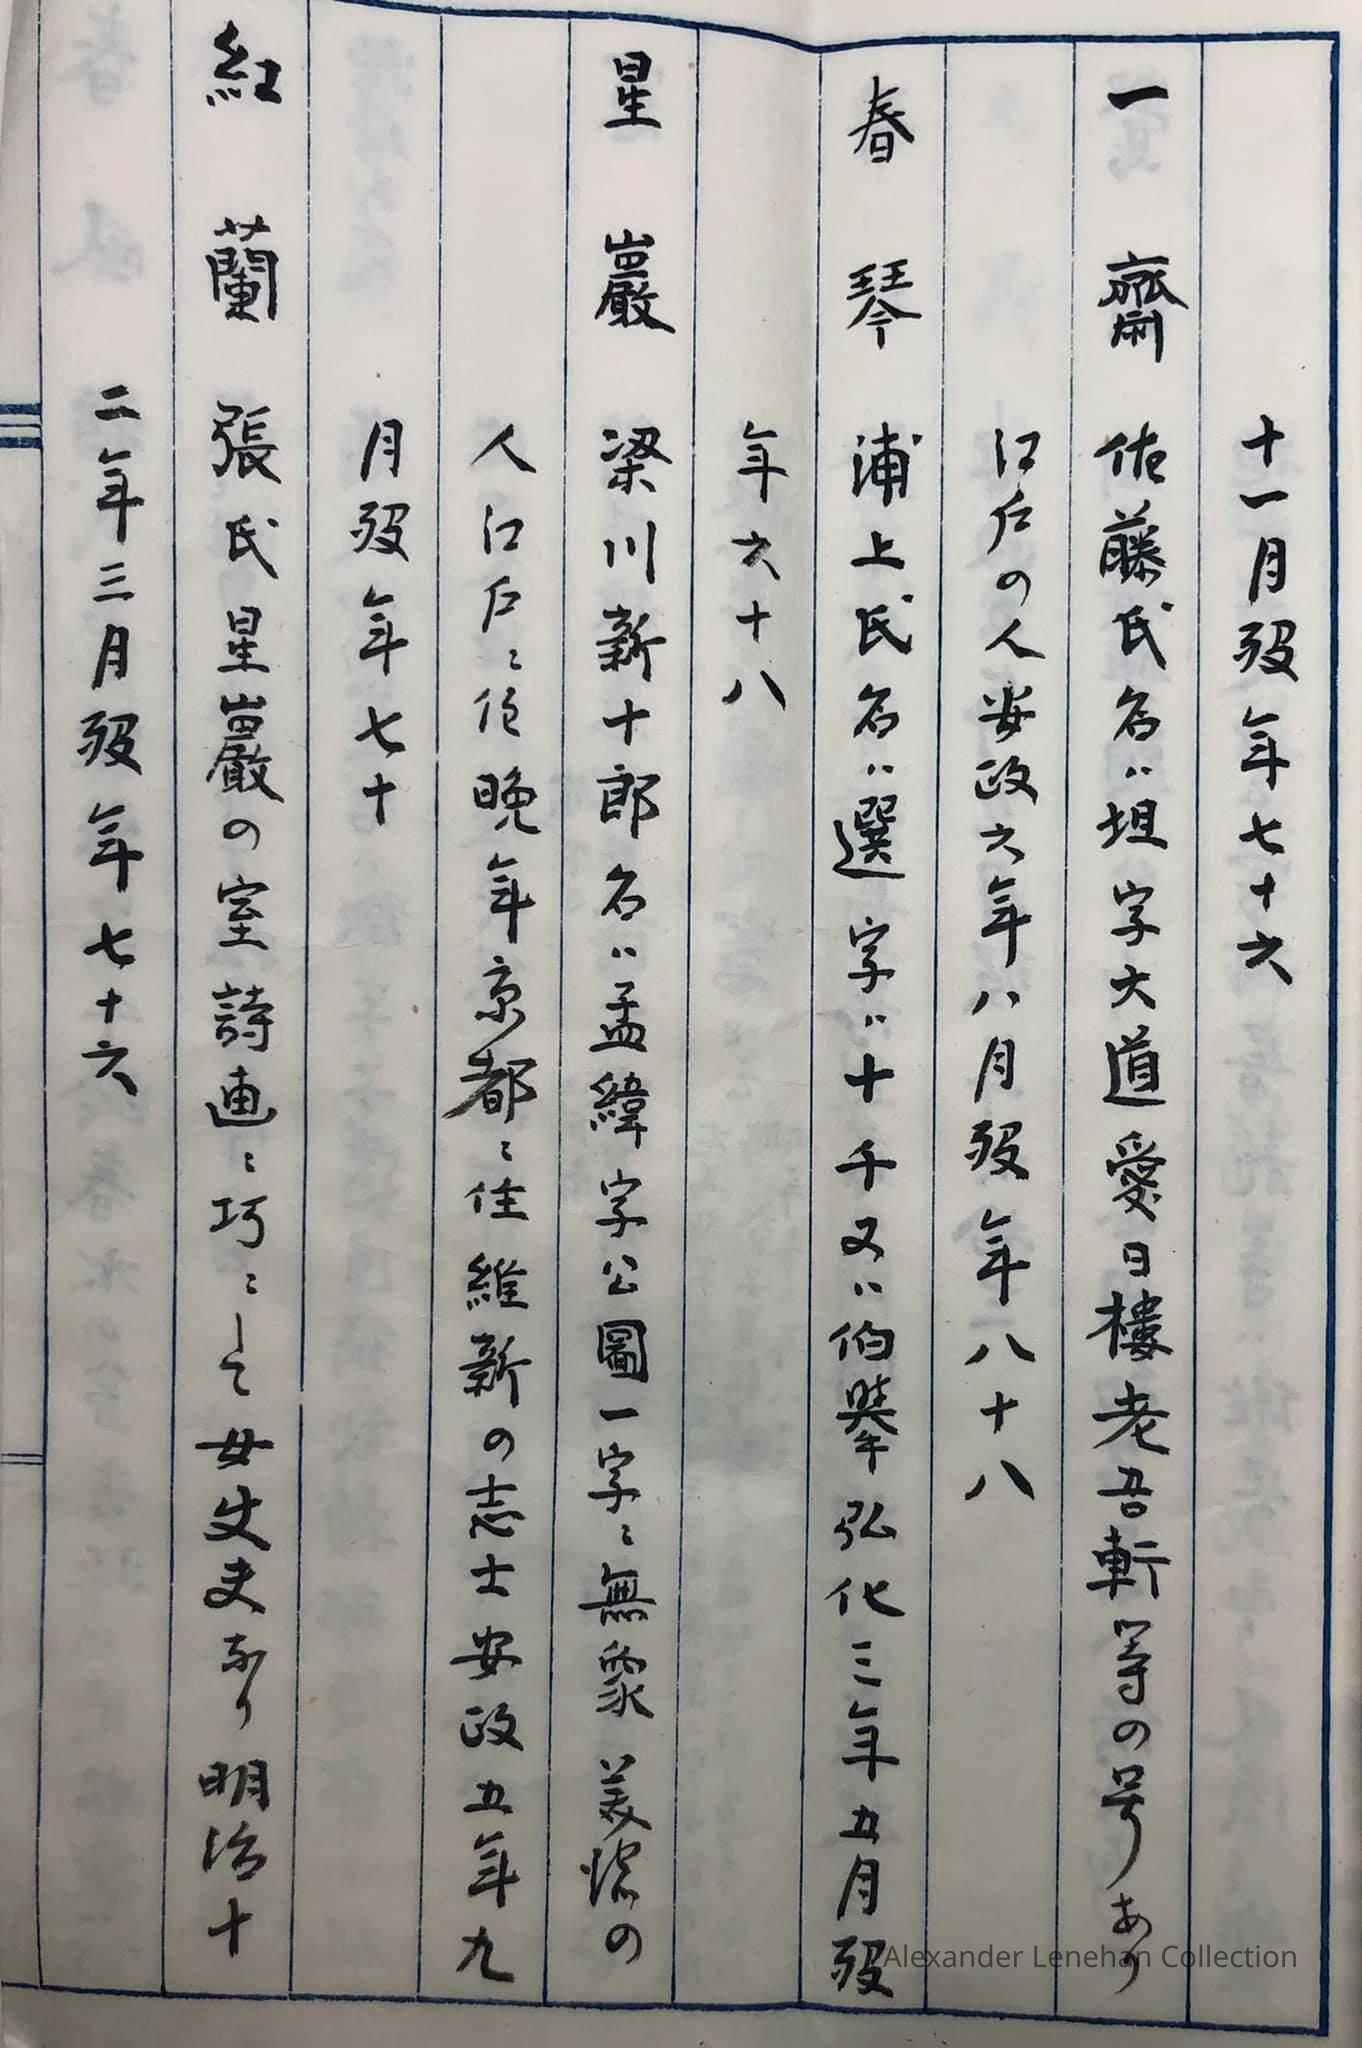 十一月歿年七十六
一齋 佐藤氏名ハ坦字大道愛日樓老吾軒等の号あり
江戸の人安政六年八月歿年八十八
春琴 浦上氏名ハ選字ハ十千又ハ伯擧弘化三年五月歿
年六十八
星巖 梁川新十郎名ハ孟緯字公圖一字ニ無象美濃の
人江戸ニ住晩年京都ニ住維新の志士安政五年九
月歿年七十
紅蘭 張氏星巖の室詩画ニ巧ニして女丈夫なり明治十
二年三月歿年七十六
Alexander Lenehan Collection